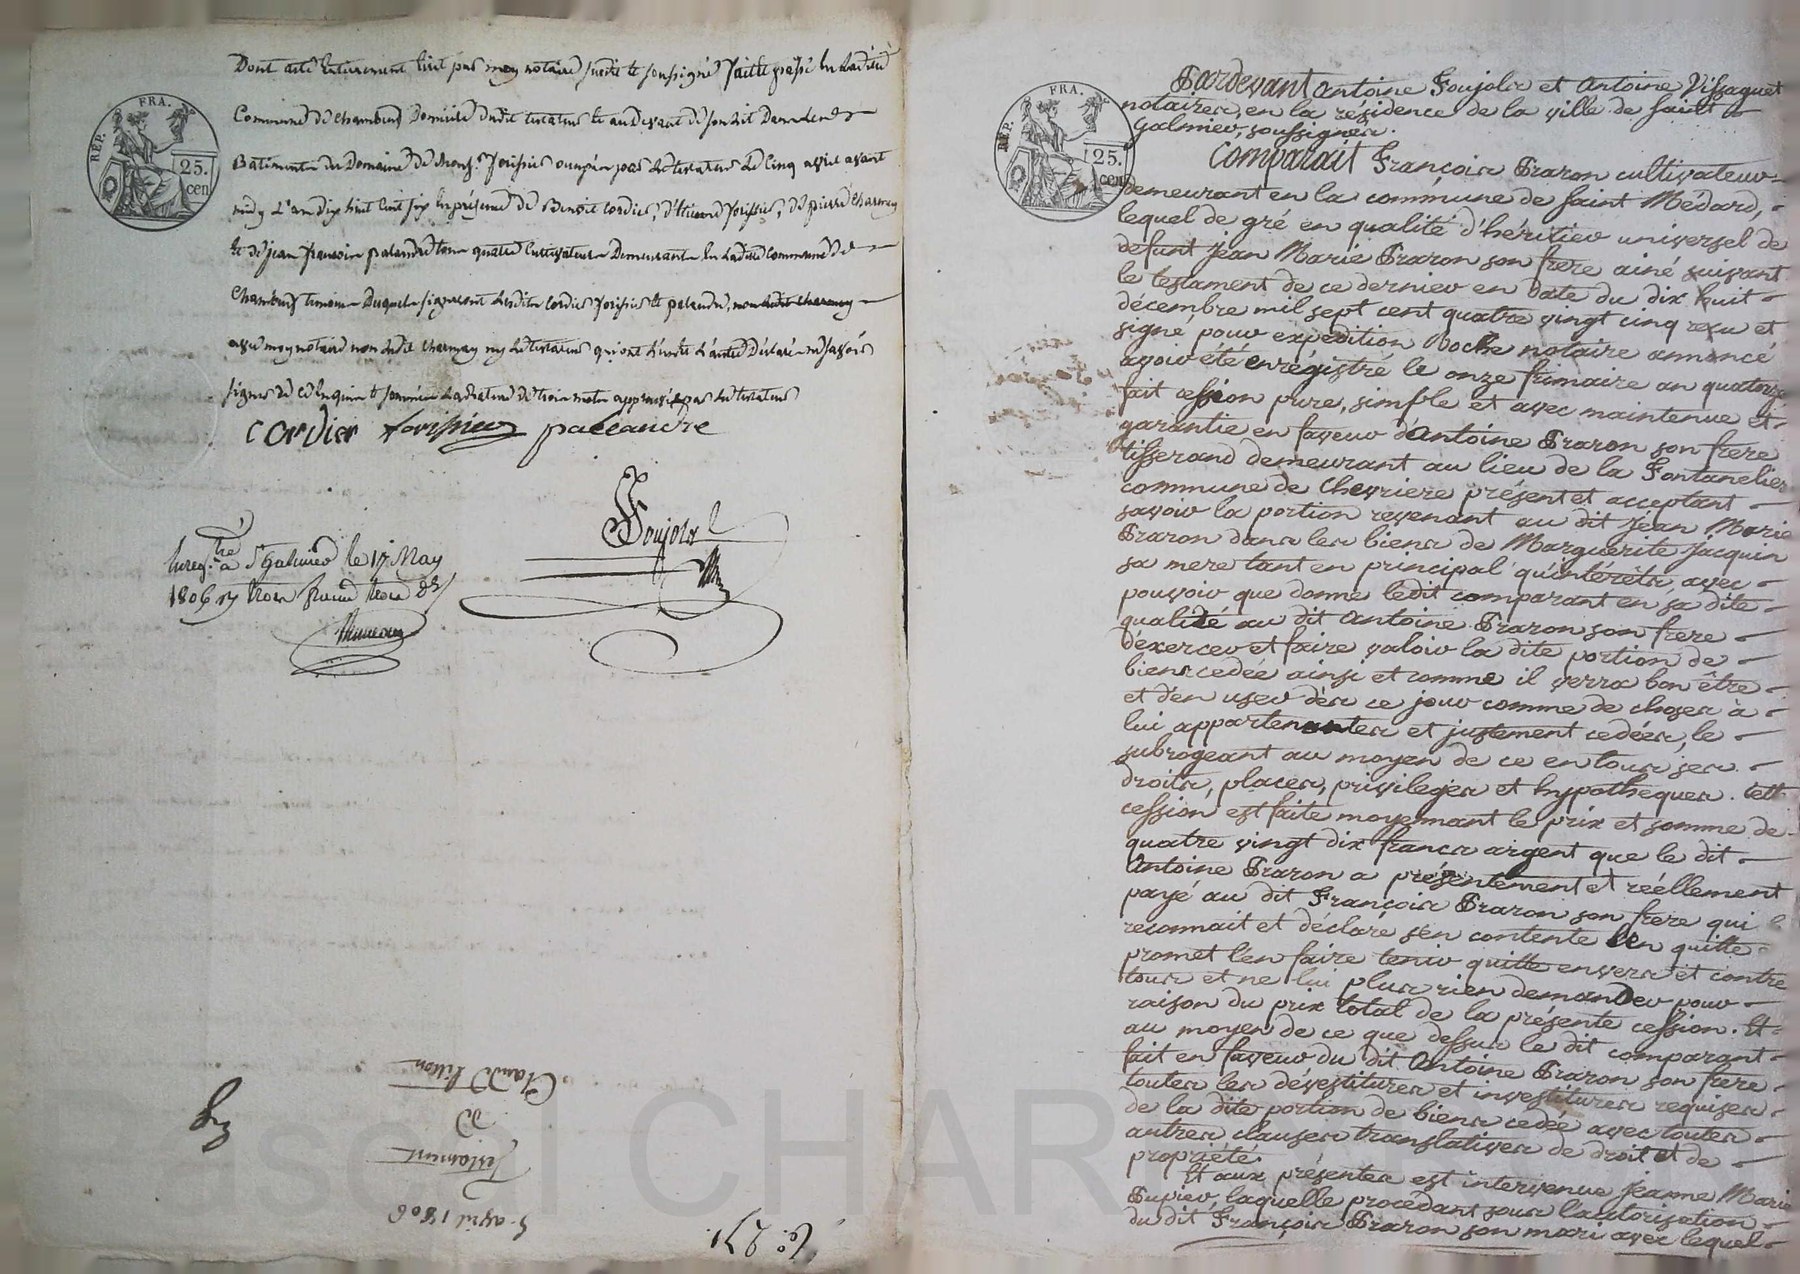 Dont acte entierement écrit par moy notaire susdit et soussigné fait et passé en la dite
Commune de Chambœuf Domicile dudit testateur et au devant de son lit dans le
Batiments du Domaine de Mons.r forissier occupés par le testateur le Cinq avril avant
midy L'an dix huit cent six en présence de Benoit Cordier, d'Etienne forissier, de pierre Charmey
et de jean francois palandre tous quatre Cultivateurs Demeurants en la ditte Commune de
Chambœuf temoins Desquels signeront lesdits Cordier forissier et palandre, non ledit Charmey
avec moy notaire non ledit Charmay ny le testateur qui ont l'un et l'autre Déclaré ne savoir
signer de ce enquis et sommés la rature de trois mots approuvée par le testateur
Cordier forissier pallandre
Foujols
Enreg.tré à St galmier le 17 May
1806 r/ trois francs trois d.es
REP. FRA.
25.
cen
Claude Pitton
de
Testament
5. avril 1806
C.e 271.
REP. FRA.
25.
cen
Pardevant Antoine Foujols et Antoine Vissaguet
notaires, en la résidence de la ville de saint
Galmier, soussignés.
Comparait François Praron cultivateur
demeurant en la commune de saint Médard,
lequel de gré en qualité d'héritier universel de
defunt Jean Marie Praron son frere ainé suivant
le testament de ce dernier en date du dix huit
décembre mil sept cent quatre vingt cinq reçu et
signé pour expédition Boche notaire annoncé
avoir été enrégistré le onze frimaire an quatorze
fait cession pure, simple et avec maintenue et
garantie en faveur d'Antoine Praron son frere
tisserand demeurant au lieu de la Fontanelier
commune de Chevriere présent et acceptant
savoir la portion revenant au dit Jean Marie
Praron dans les biens de Marguerite Jacquin
sa mere tant en principal qu'intérêts, avec
pouvoir que donne ledit comparant en sa dite
qualité au dit Antoine Praron son frere
d'exercer et faire valoir la dite portion de
biens cedée ainsi et comme il verra bon être
et d'en user dès ce jour comme de choses à
lui appartenantes et justement cedées, le
subrogeant au moyen de ce en tous ses
droits, places, privileges et hypotheques. Cette
cession est faite moyennant le prix et somme de
quatre vingt dix francs argent que le dit
Antoine Praron a présentement et réellement
payé au dit François Praron son frere qui le
reconnait et déclare s'en contente l'en quitte
promet l'en faire tenir quitte envers et contre
tous et ne lui plus rien demander pour
raison du prix total de la présente cession. Et
au moyen de ce que dessus le dit comparant
fait en faveur du dit Antoine Praron son frere
toutes les dévestitures et investitures requises
de la dite portion de biens cedée avec toutes
autres clauses translatives de droit et de
propriété.
Et aux présentes est intervenue Jeanne Marie
Pupier, laquelle procédant sous l'autorisation
du dit François Praron son mari avec lequel
Pascal CHAR